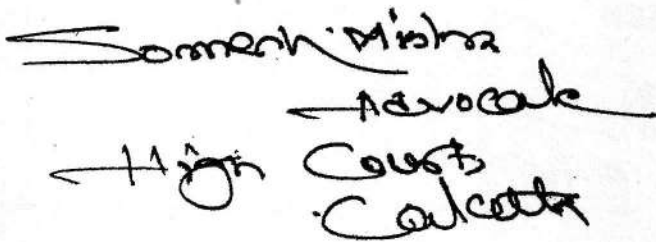 Somesh Mishra
Advocate
High Court,
Calcutta